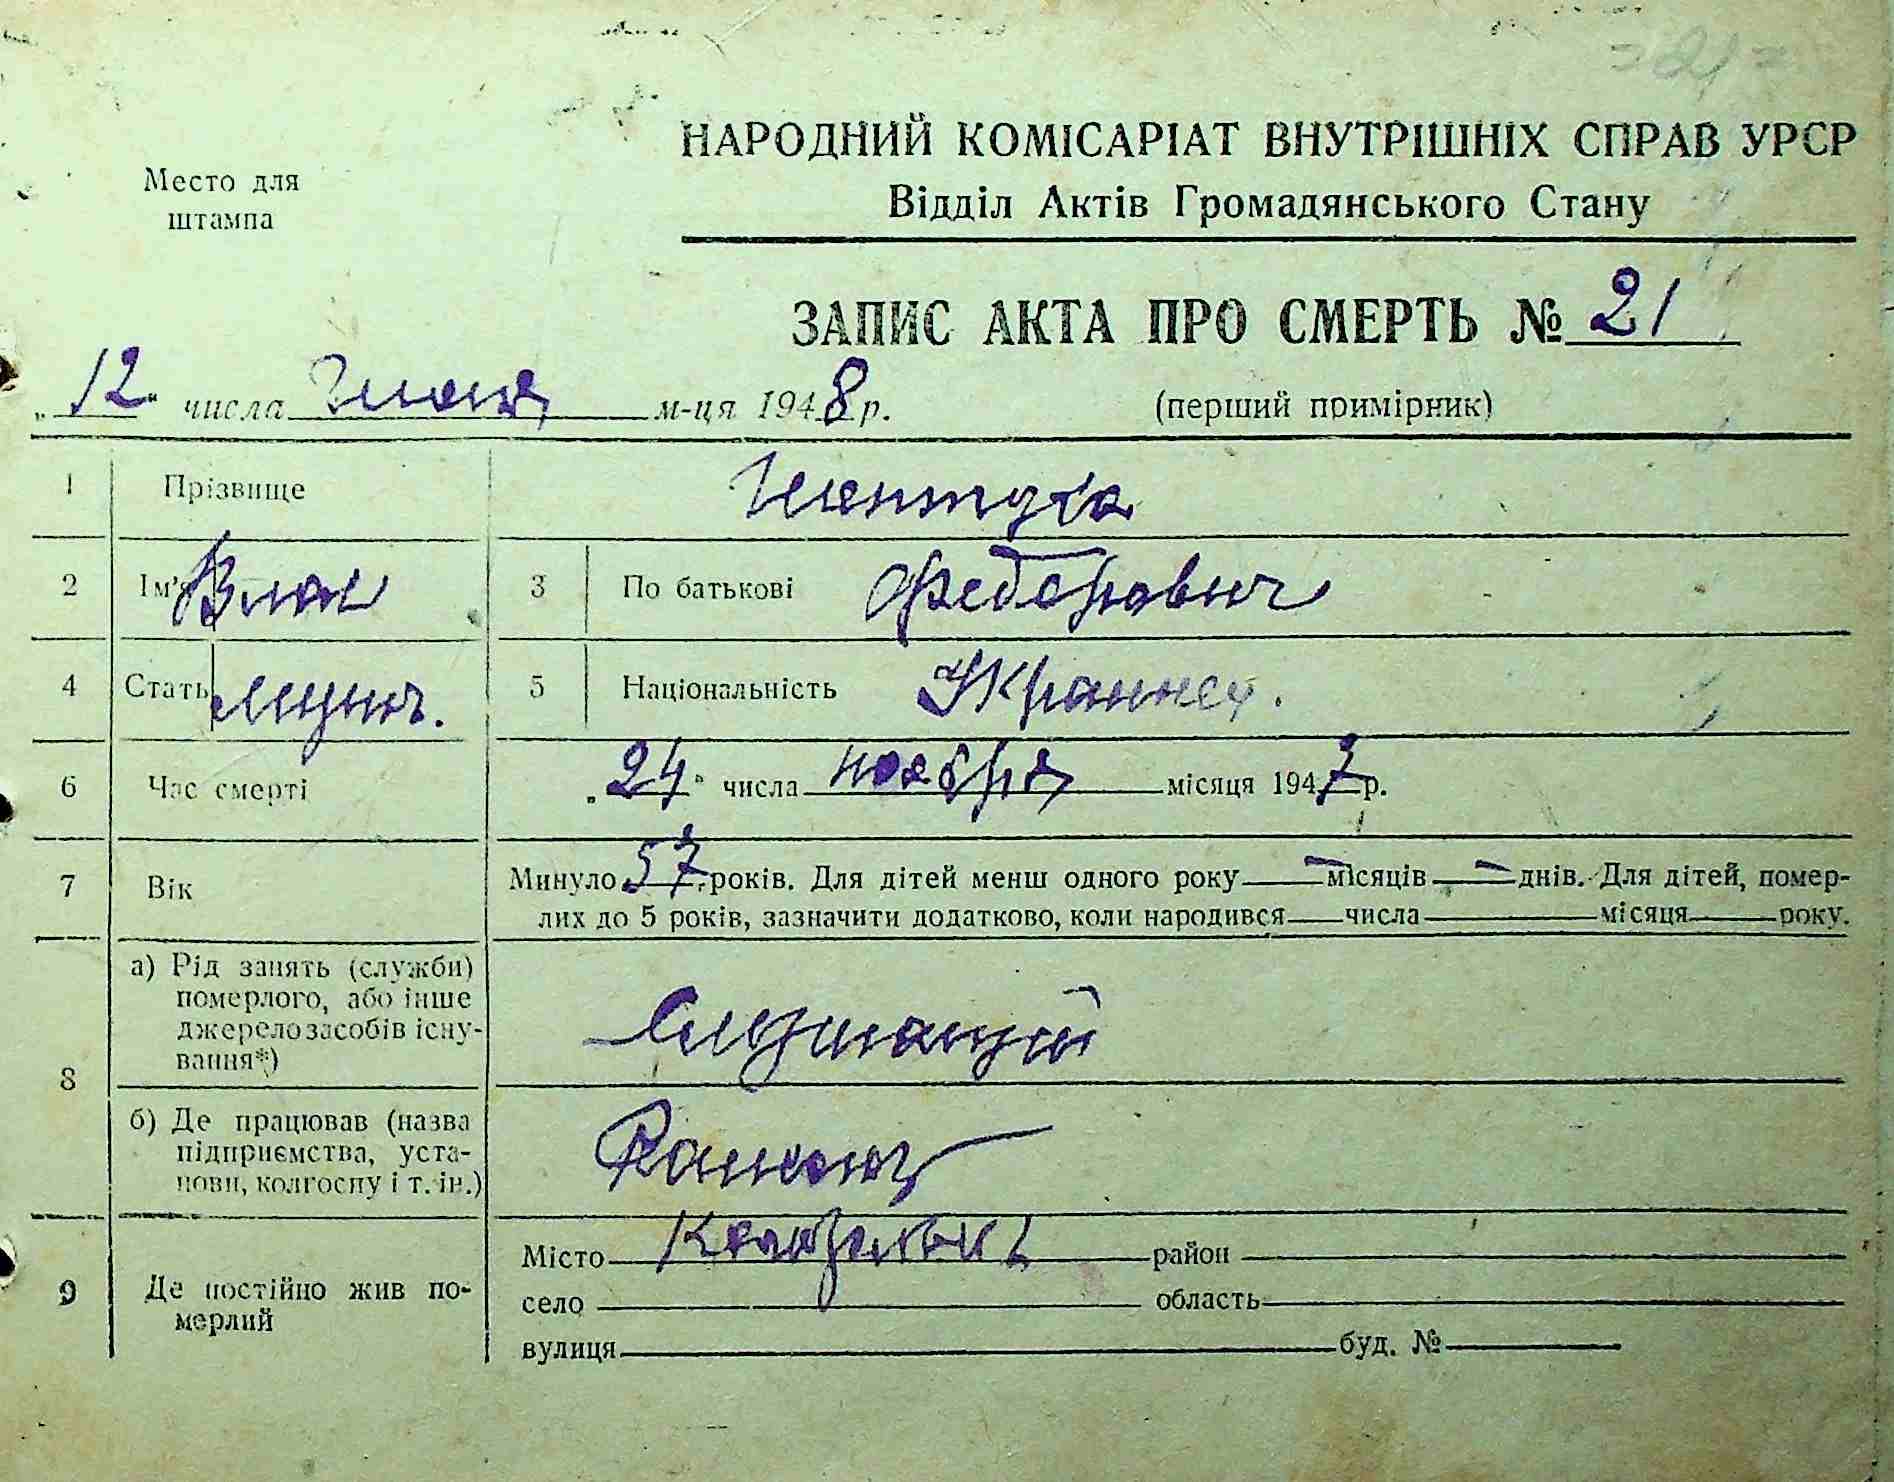 = 21 =
Место для
штампа
НАРОДНИЙ КОМІСАРІАТ ВНУТРІШНІХ СПРАВ УРСР
Відділ Актів Громадянського Стану
ЗАПИС АКТА ПРО СМЕРТЬ № 21
„12“ числа м-ця 1948 р. (перший примірник)
1 Прізвище
2 Ім'я Влас 3 По батькові Федорович
4 Стать мужч. 5 Національність Украинец.
6 Час смерті „24“ числа ноября місяця 1947 р.
7 Вік Минуло 57 років. Для дітей менш одного року — місяців — днів. Для дітей, помер-
лих до 5 років, зазначити додатково, коли народився числа місяця року.
8 а) Рід занять (служби)
померлого, або інше
джерело засобів існу-
вання*)
Служащий
б) Де працював (назва
підприємства, уста-
нови, колгоспу і т. ін.)
9 Де постійно жив по-
мерлий
Місто район
село область
вулиця буд. №